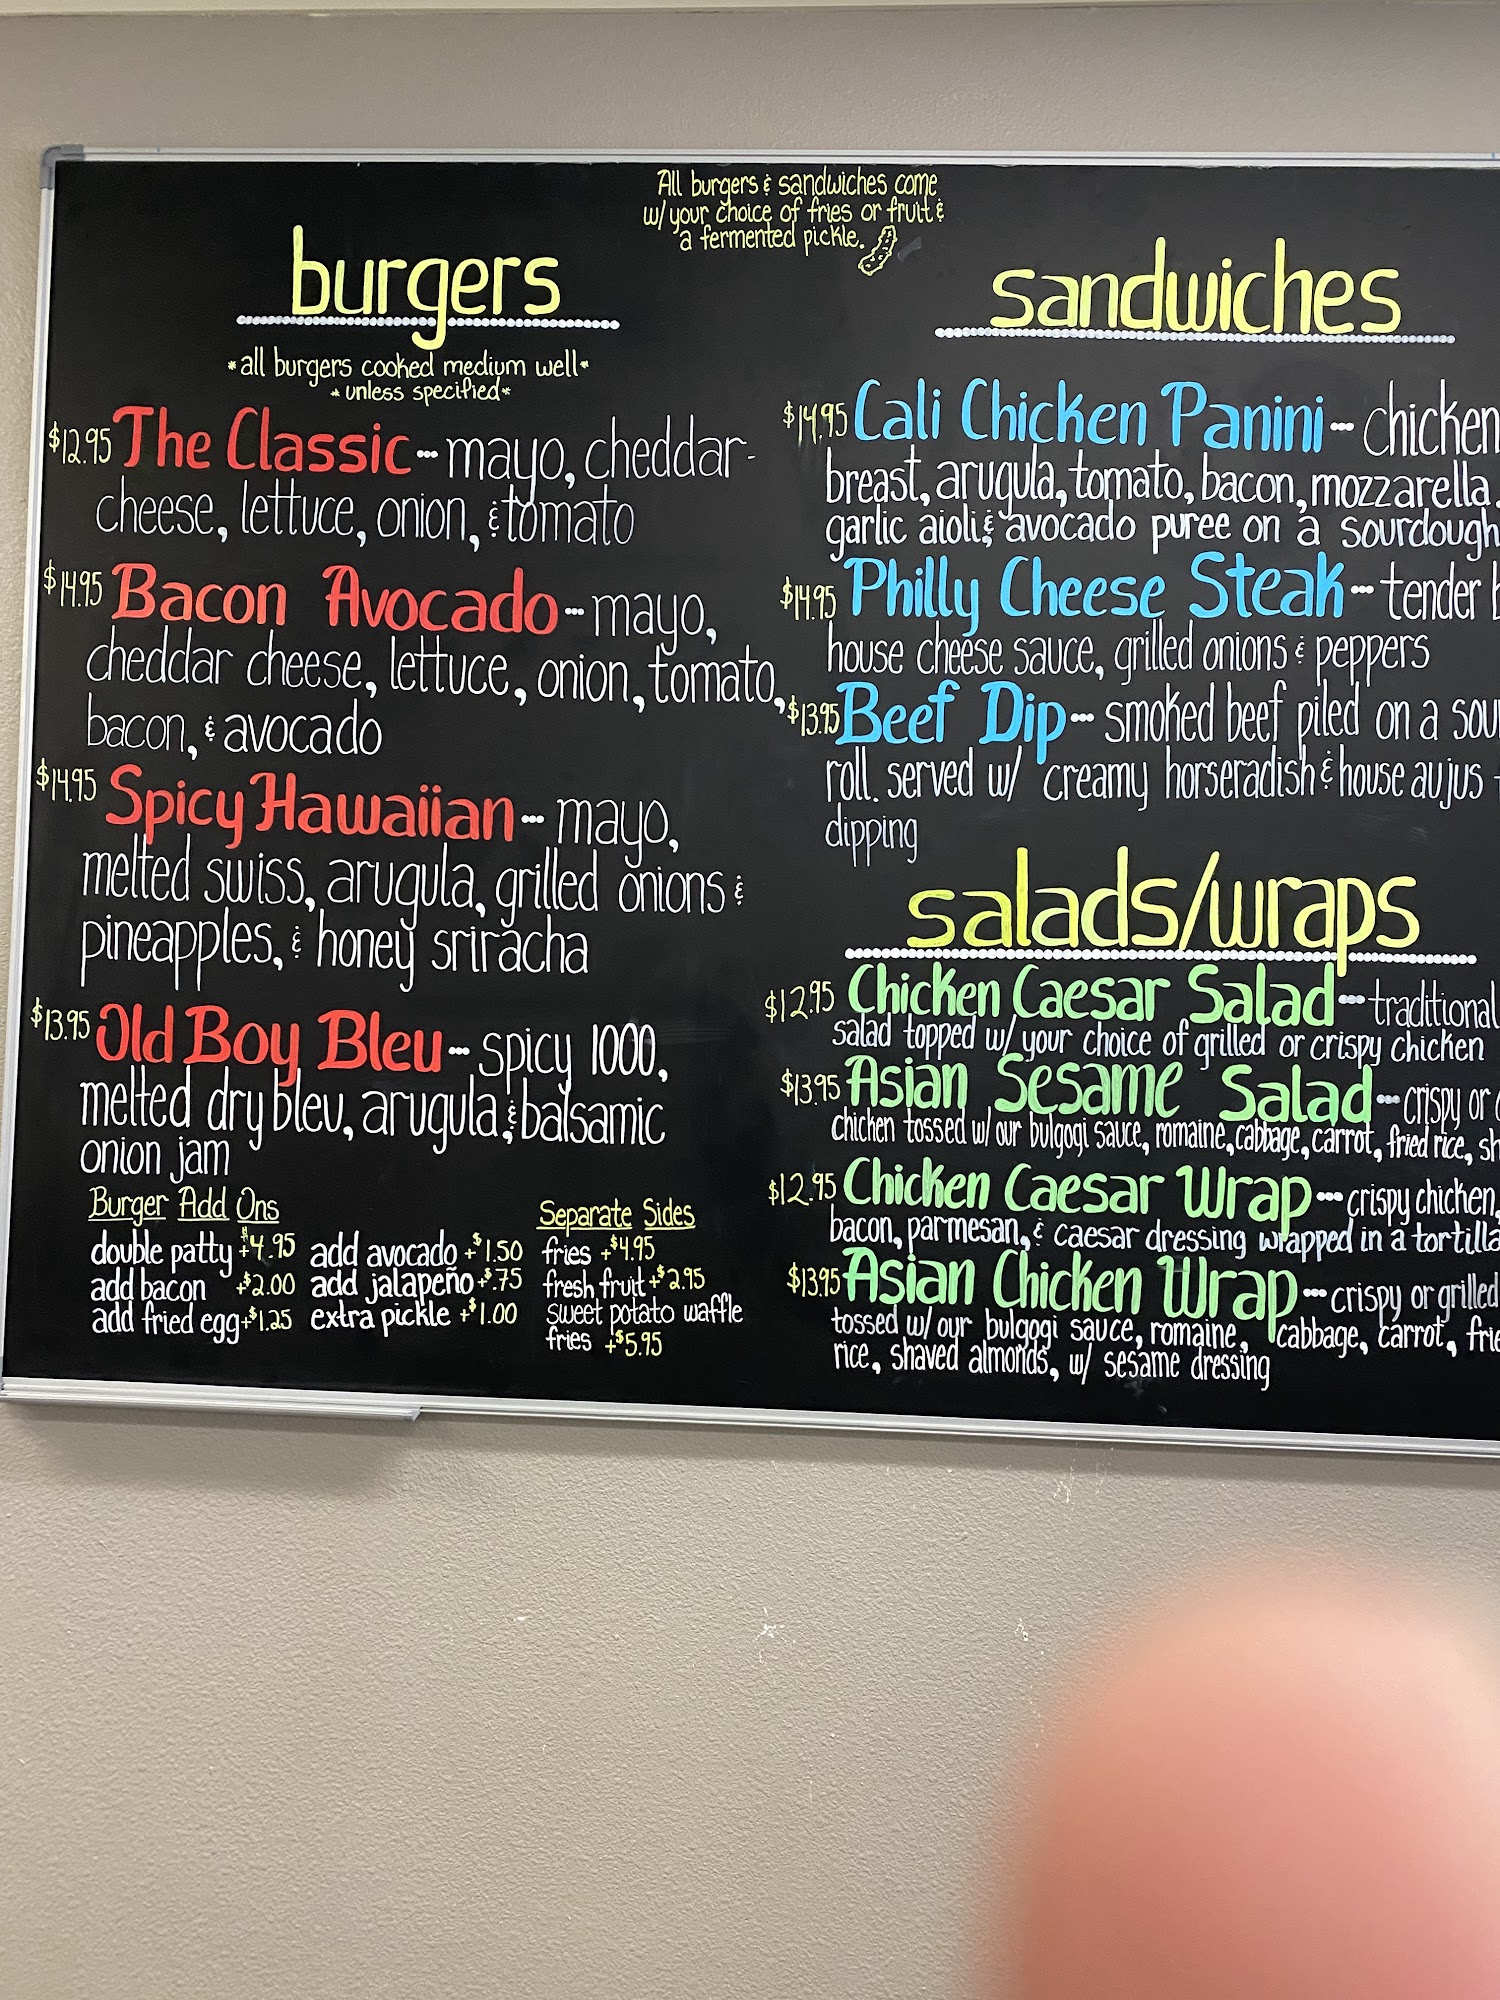 All burgers & sandwiches come
w/ your choice of fries or fruit &
a fermented pickle.
burgers
*all burgers cooked medium well*
*unless specified*
$12.95 The Classic--- mayo, cheddar-
cheese, lettuce, onion, & tomato
$14.95 Bacon Avocado--- mayo,
cheddar cheese, lettuce, onion, tomato,
bacon, & avocado
$14.95 Spicy Hawaiian--- mayo,
melted swiss, arugula, grilled onions &
pineapples, & honey sriracha
$13.95 Old Boy Bleu--- spicy 1000,
melted dry bleu, arugula, & balsamic
onion jam
Burger Add Ons
double patty +$4.95 add avocado +$1.50
add bacon +$2.00 add jalapeño +$.75
add fried egg +$1.25 extra pickle +$1.00
Separate Sides
fries +$4.95
fresh fruit +$2.95
sweet potato waffle
fries +$5.95
sandwiches
$14.95 Cali Chicken Panini--- chicken
breast, arugula, tomato, bacon, mozzarella,
garlic aioli & avocado puree on a sourdough
$14.95 Philly Cheese Steak--- tender
house cheese sauce, grilled onions & peppers
$13.95 Beef Dip--- smoked beef piled on a
roll. served w/ creamy horseradish & house aujus
dipping
salads/wraps
$12.95 Chicken Caesar Salad--- traditional
salad topped w/ your choice of grilled or crispy chicken
$13.95 Asian Sesame Salad--- crispy or
chicken tossed w/ our bulgogi sauce, romaine, cabbage, carrot, fried rice,
$12.95 Chicken Caesar Wrap--- crispy chicken,
bacon, parmesan, & caesar dressing wrapped in a tortilla
$13.95 Asian Chicken Wrap--- crispy or grilled
tossed w/ our bulgogi sauce, romaine, cabbage, carrot,
rice, shaved almonds, w/ sesame dressing